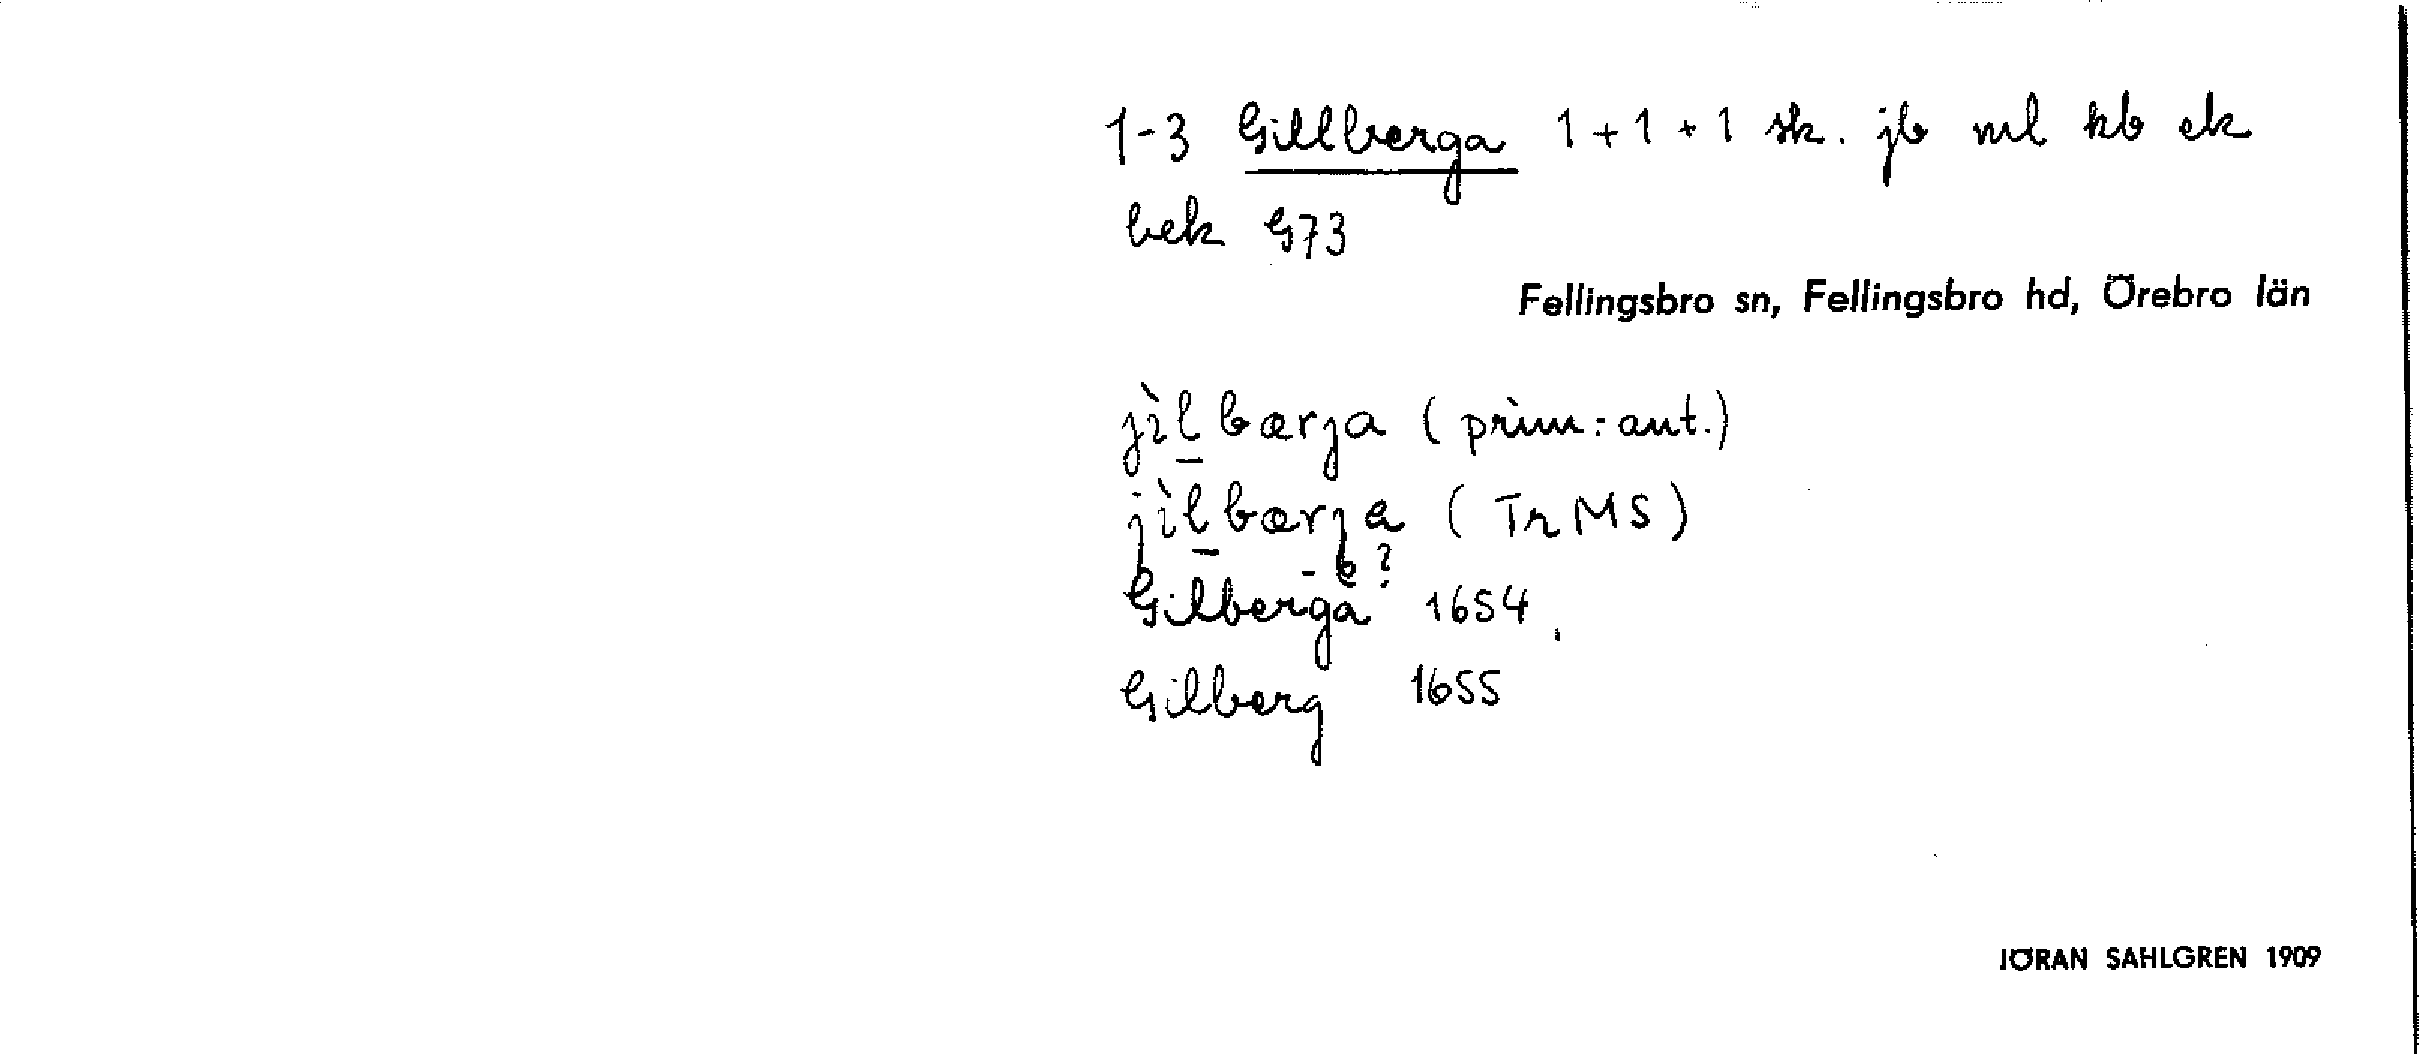 1-3 Gillberga 1+1+1 sk. jb ml kb ek
bek G73
Fellingsbro sn, Fellingsbro hd, Örebro län
jìlbærja (prim:ant.)
jìlbærja (Tr MS)
-e?
Gilberga 1654
Gilberg 1655
JÖRAN SAHLGREN 1909